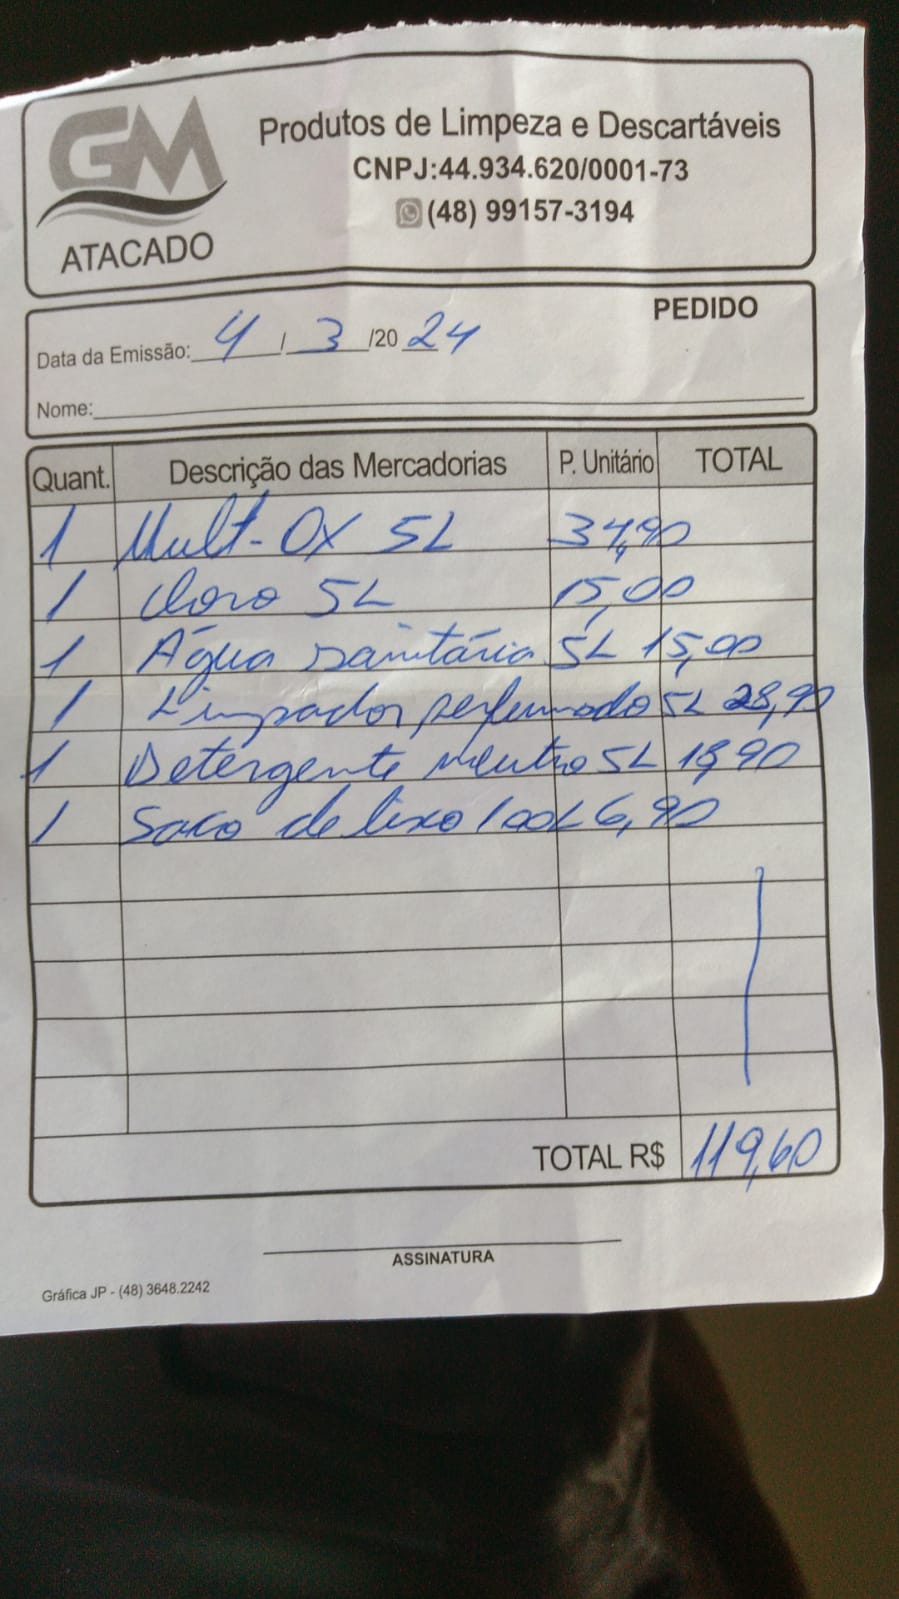 GM
ATACADO
Produtos de Limpeza e Descartáveis
CNPJ:44.934.620/0001-73
(48) 99157-3194
PEDIDO
Data da Emissão: 4 / 3 /20 24
Nome:
Quant. Descrição das Mercadorias P. Unitário TOTAL
1 Mult-OX 5L 34,90
1 Cloro 5L 15,00
1 Água sanitária 5L 15,00
1 Limpador perfumado 5L 28,90
1 Detergente neutro 5L 18,90
1 Saco de lixo 100L 6,90
TOTAL R$ 119,60
ASSINATURA
Gráfica JP - (48) 3648.2242